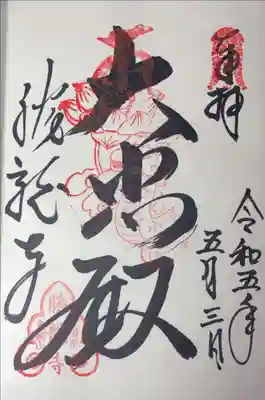 奉拝
令和五年
五月三日
大悲殿
勝龍寺